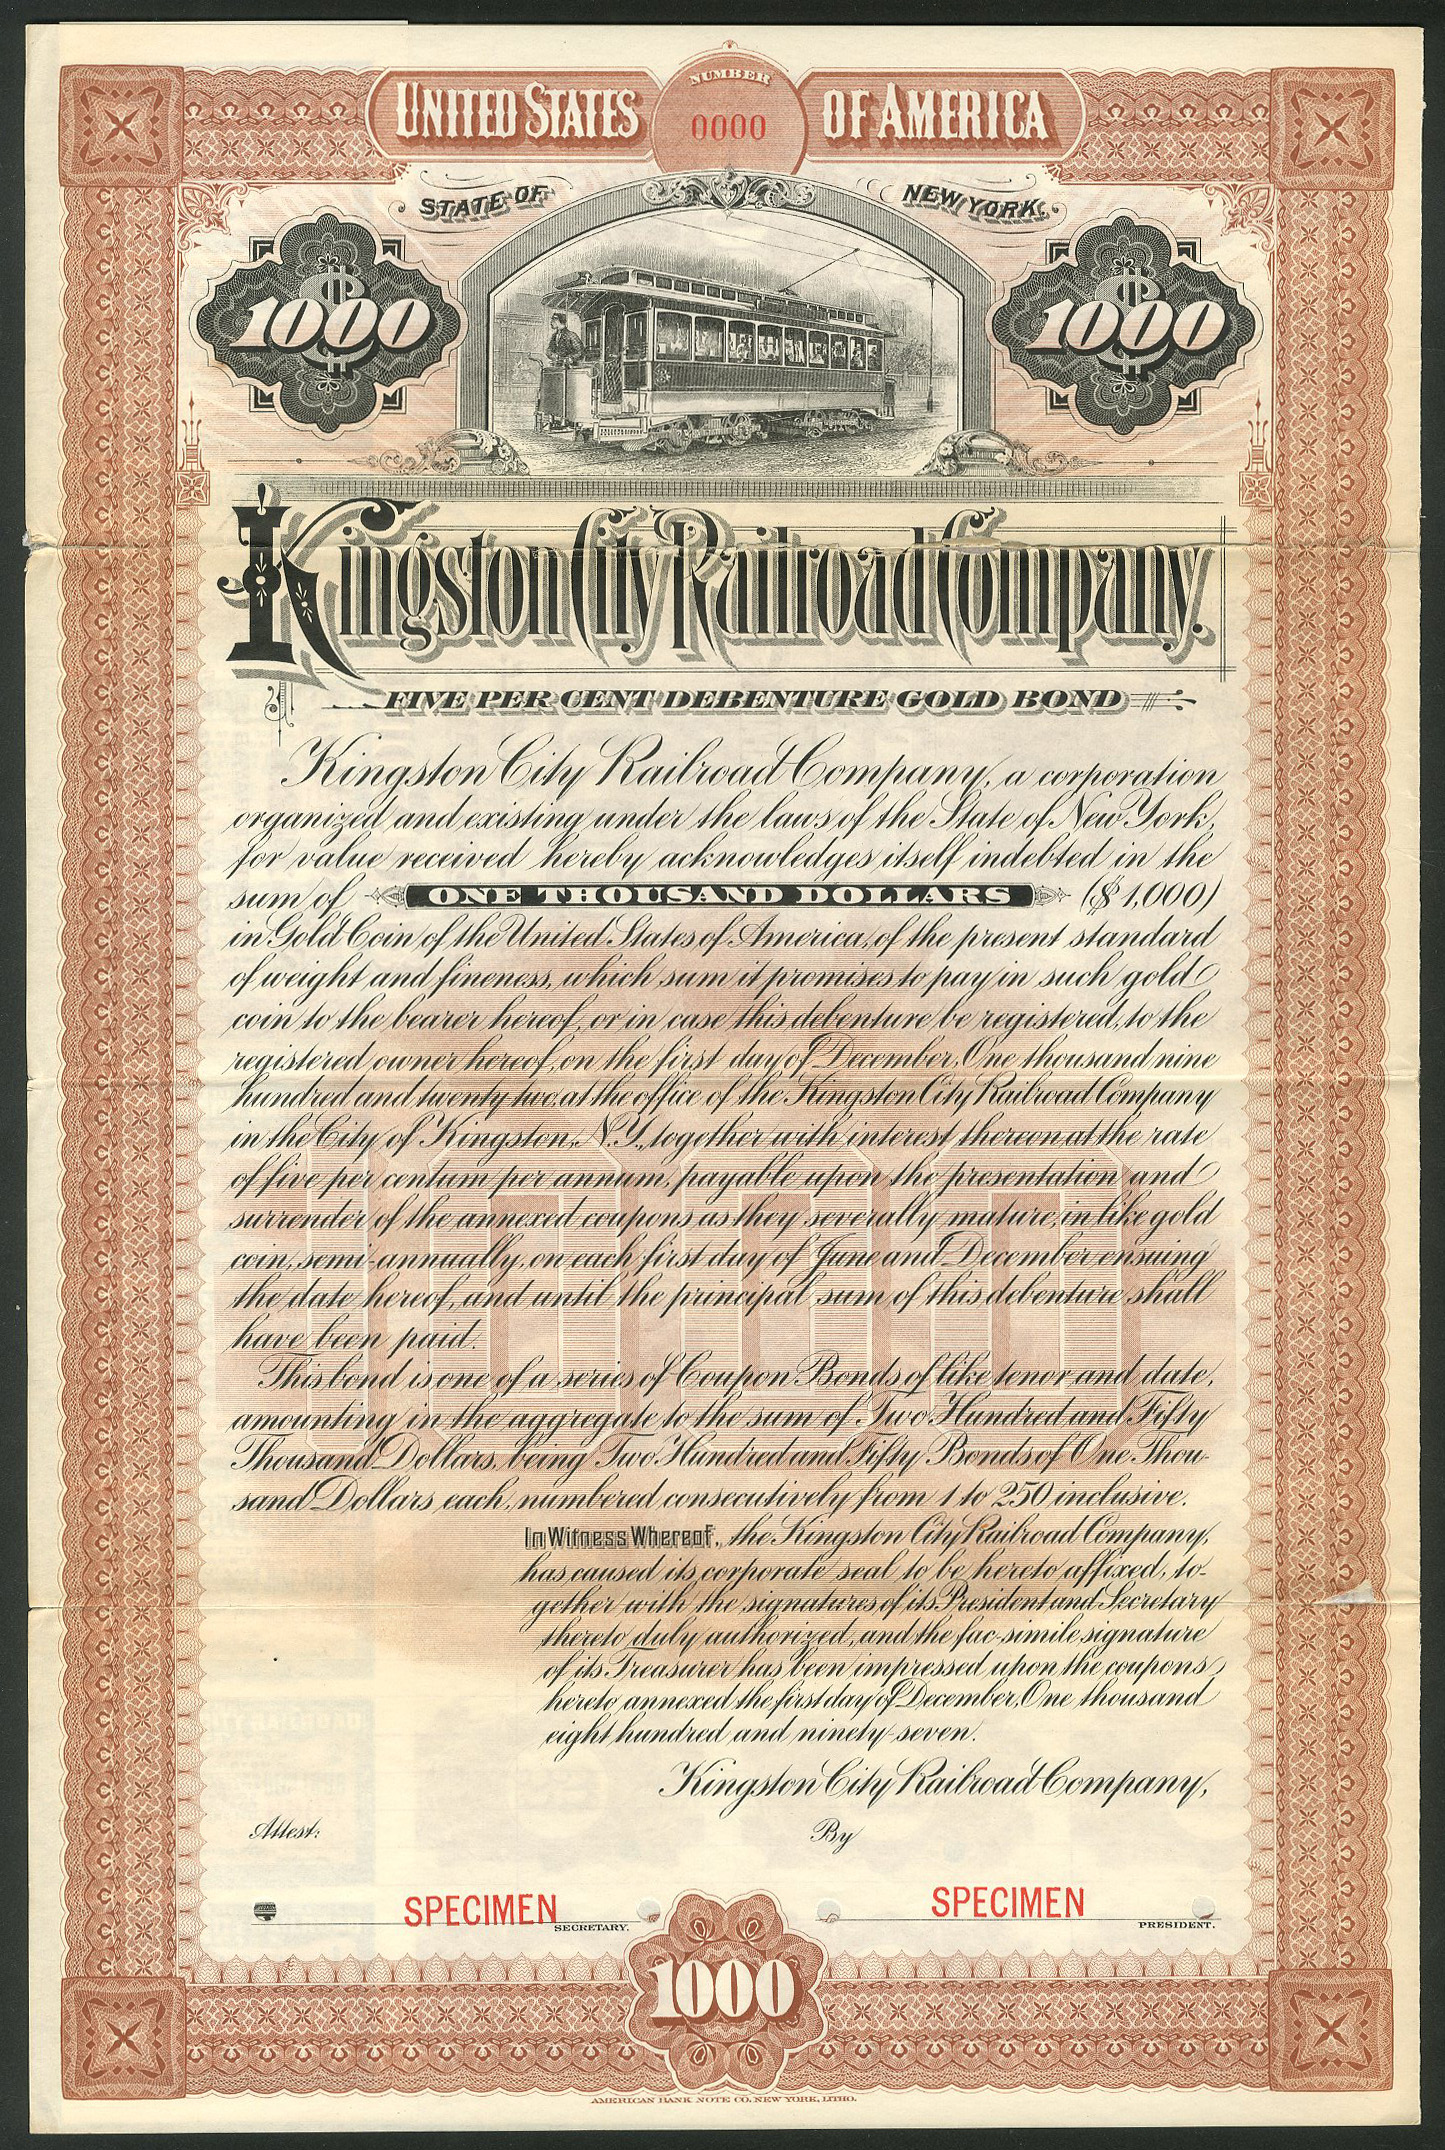 NUMBER
UNITED STATES 0000 OF AMERICA
STATE OF NEW YORK.
$1000 $1000
Kingston City Railroad Company.
FIVE PER CENT DEBENTURE GOLD BOND
Kingston City Railroad Company, a corporation
organized and existing under the laws of the State of New York,
for value received hereby acknowledges itself indebted in the
sum of ONE THOUSAND DOLLARS ($1,000)
in Gold Coin of the United States of America, of the present standard
of weight and fineness, which sum it promises to pay in such gold
coin to the bearer hereof, or in case this debenture be registered, to the
registered owner hereof, on the first day of December, One thousand nine
hundred and twenty two, at the office of the Kingston City Railroad Company
in the City of Kingston, N.Y., together with interest thereon at the rate
of five per centum per annum, payable upon the presentation and
surrender of the annexed coupons as they severally mature, in like gold
coin, semi-annually, on each first day of June and December ensuing
the date hereof, and until the principal sum of this debenture shall
have been paid.
This bond is one of a series of Coupon Bonds of like tenor and date,
amounting in the aggregate to the sum of Two Hundred and Fifty
Thousand Dollars, being Two Hundred and Fifty Bonds of One Thou-
sand Dollars each, numbered consecutively from 1 to 250 inclusive.
In Witness Whereof, the Kingston City Railroad Company,
has caused its corporate seal to be hereto affixed, to-
gether with the signatures of its President and Secretary
thereto duly authorized, and the fac-simile signature
of its Treasurer has been impressed upon the coupons
hereto annexed the first day of December, One thousand
eight hundred and ninety-seven.
Kingston City Railroad Company,
Attest: By
SPECIMEN SPECIMEN
SECRETARY. PRESIDENT.
1000
AMERICAN BANK NOTE CO. NEW YORK, LITHO.